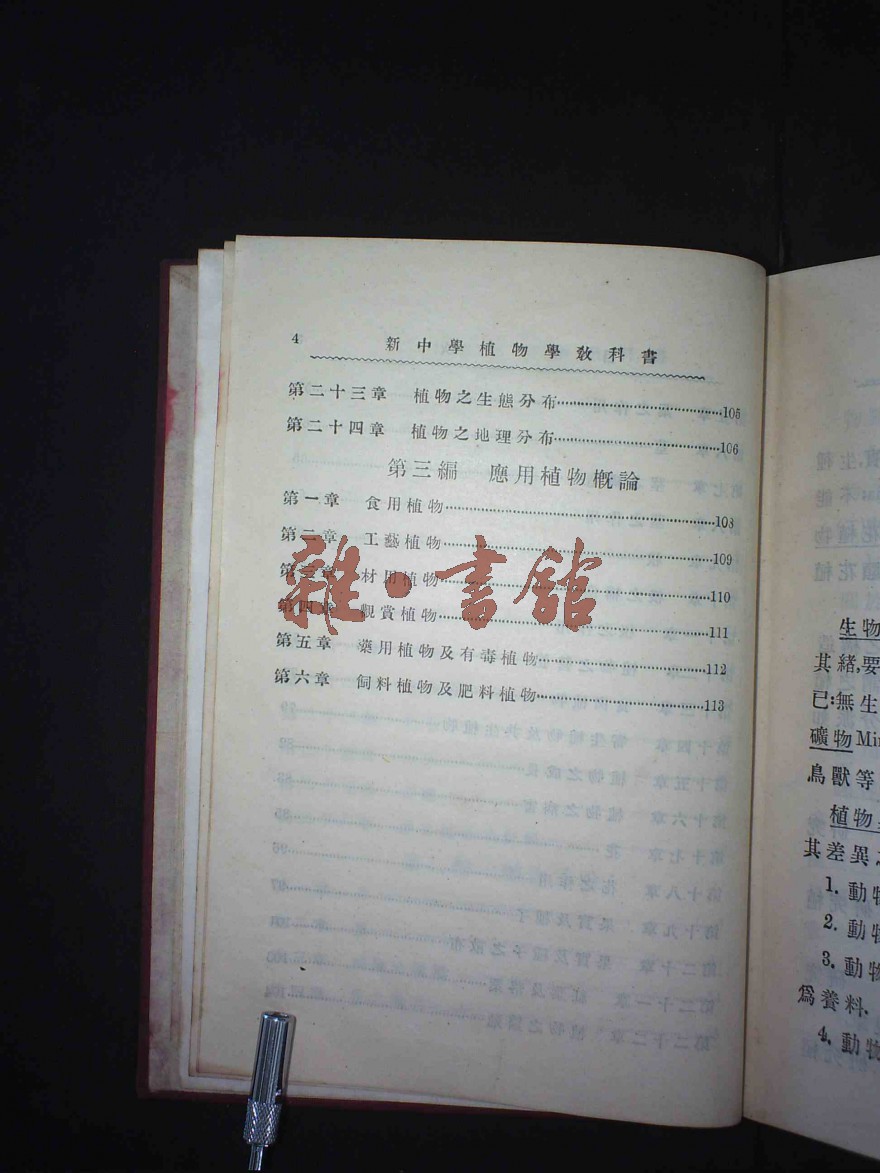 4 新中學植物學教科書
第二十三章 植物之生態分布……105
第二十四章 植物之地理分布……106
第三編 應用植物概論
第一章 食用植物……108
第二章 工藝植物……109
第三章 材用植物……110
第四章 觀賞植物……111
第五章 藥用植物及有毒植物……112
第六章 飼料植物及肥料植物……113
雜·書館
生物
其緒,要
已:無生
礦物Min
鳥獸等
植物
其差異
1. 動物
2. 動物
3. 動物
爲養料.
4. 動物